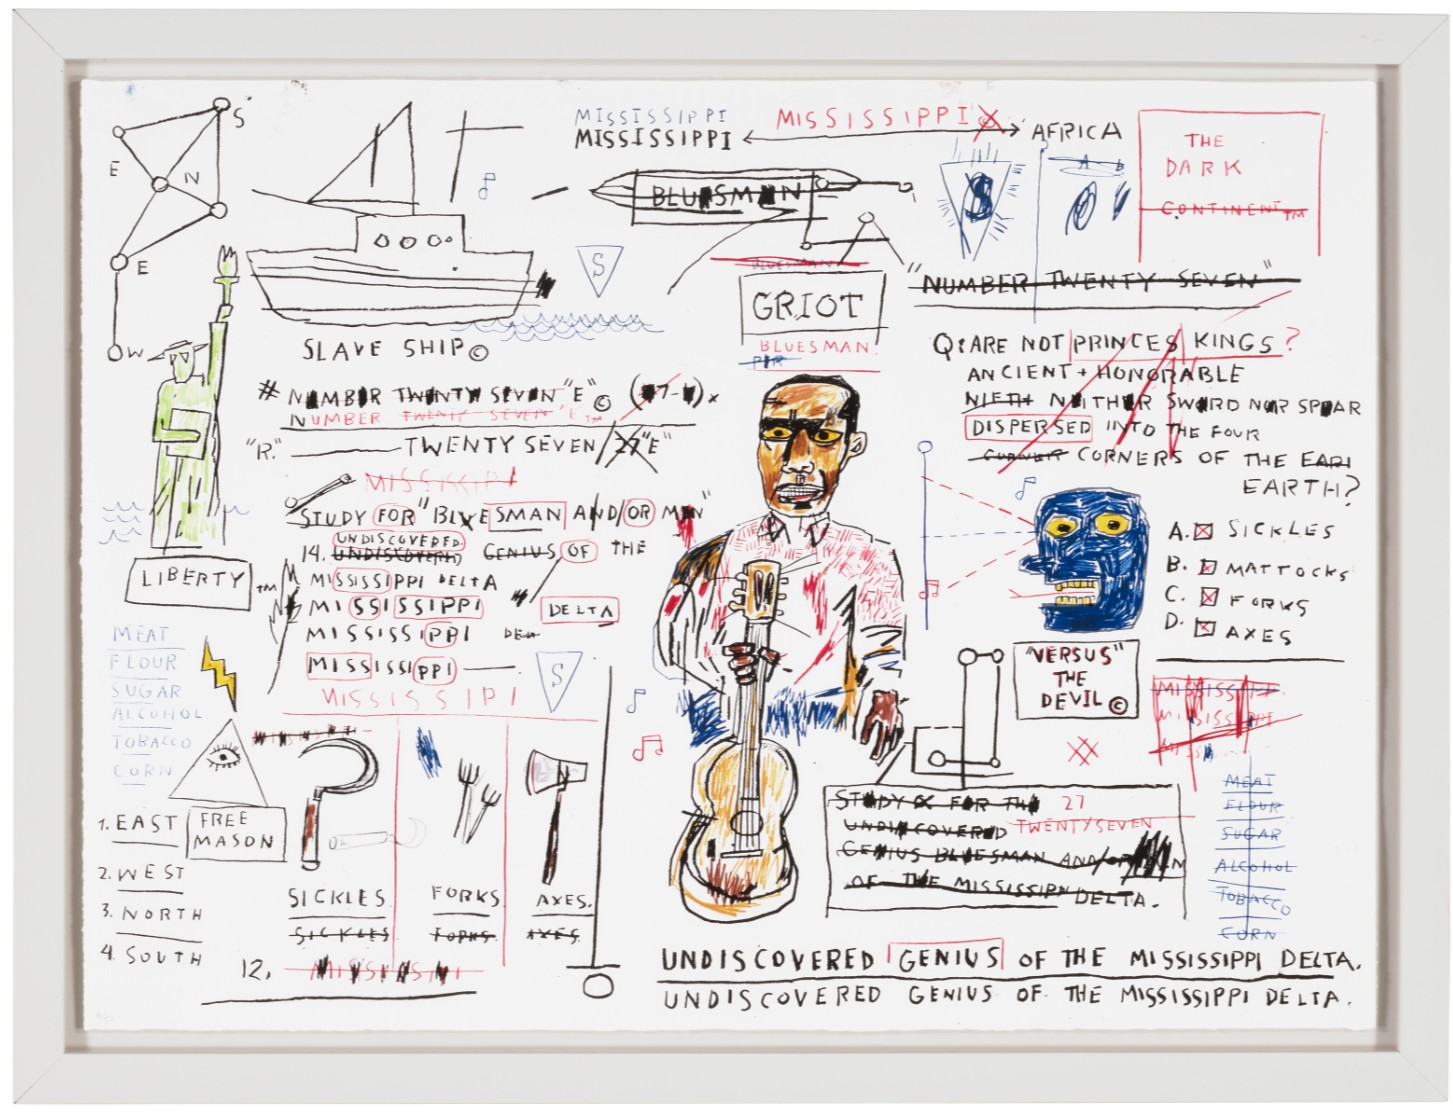 S
E
N
E
W
MISSISSIPPI
MISSISSIPPI
MISSISSIPPI
AFRICA
THE
DARK
CONTINENT™
BLUESMAN
S
S
A B
"NUMBER TWENTY SEVEN"
BLUESMAN
GRIOT
BLUESMAN.
SLAVE SHIP©
LIBERTY™
# NUMBER TWENTY SEVEN "E"©
NUMBER TWENTY SEVEN "E™
"R." TWENTY SEVEN/27"E"
MISSISSIPI
STUDY FOR "BLUESMAN AND/OR MEN"
UNDISCOVERED
14. UNDISCOVERED GENIUS OF THE
MISSISSIPPI DELTA
MISSISSIPPI DELTA
MISSISSIPPI
MISSISSIPPI
S
MISSISSIPI
Q: ARE NOT PRINCES KINGS?
ANCIENT + HONORABLE
NIETH NEITHER SWORD NOR SPEAR
DISPERSED INTO THE FOUR
CORNERS OF THE EARI
EARTH?
A. SICKLES
B. MATTOCKS
C. FORKS
D. AXES
"VERSUS"
THE
DEVIL©
MEAT
FLOUR
SUGAR
ALCOHOL
TOBACCO
CORN
FREE
MASON
1. EAST
2. WEST
3. NORTH
4. SOUTH
SICKLES.
SICKLES
FORKS
FORKS.
AXES.
AXES.
12.
MISSISSIPPI
STUDY FOR THE 27
UNDISCOVERED TWENTYSEVEN
GENIUS BLUESMAN AND/OR MEN
OF THE MISSISSIPI DELTA.
MEAT
FLOUR
SUGAR
ALCOHOL
TOBACCO
CORN
UNDISCOVERED GENIUS OF THE MISSISSIPPI DELTA.
UNDISCOVERED GENIUS OF THE MISSISSIPPI DELTA.